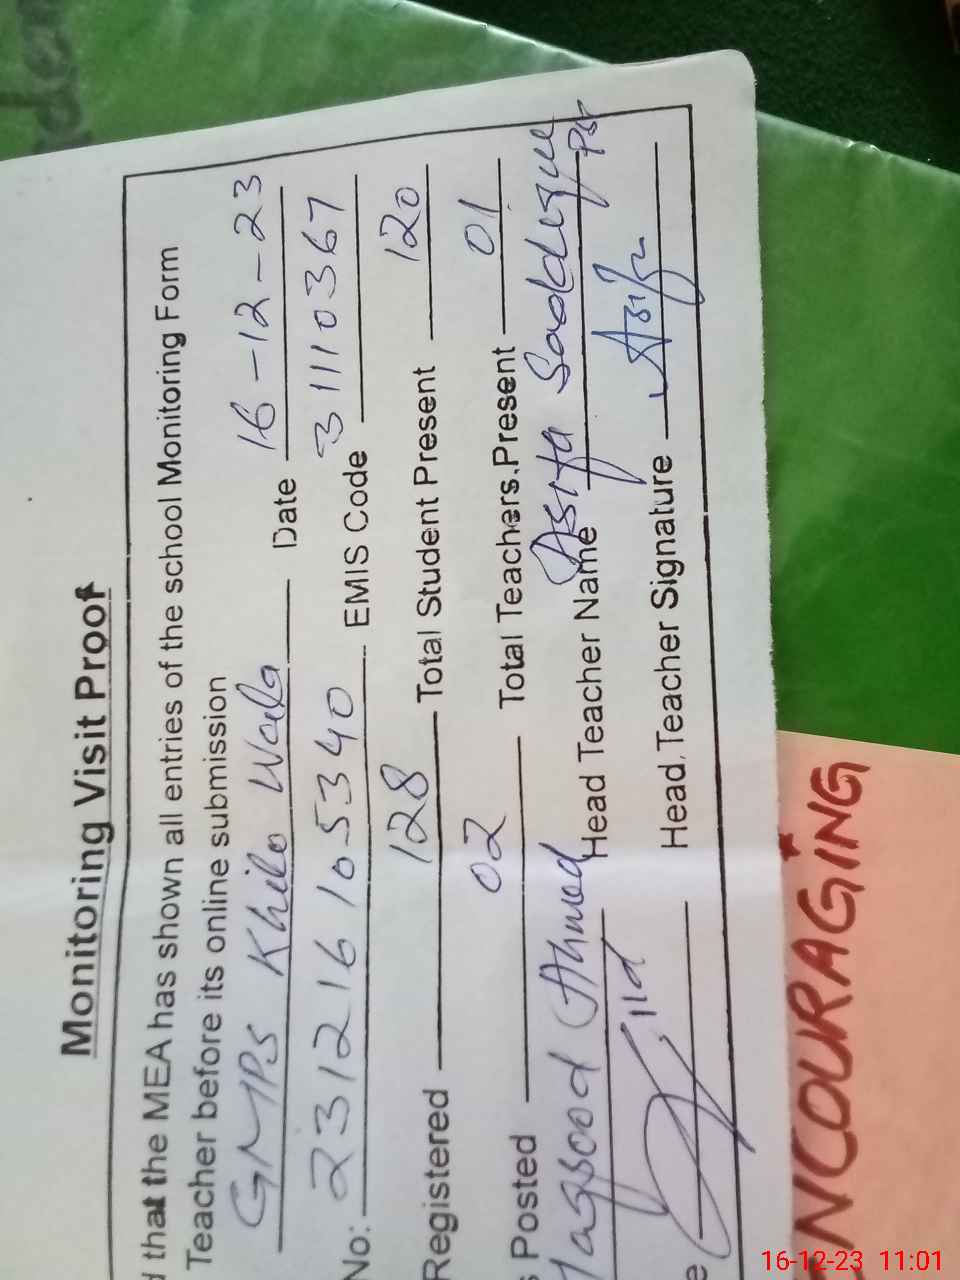 Monitoring Visit Proof
that the MEA has shown all entries of the school Monitoring Form
Teacher before its online submission
GMPS Khilo Wala Date 16-12-23
No: 231216105340 EMIS Code 31110367
Registered 128 Total Student Present 120
Posted 02 Total Teachers Present 01
Ahmed Head Teacher Name Asifa Saddique PST
Head Teacher Signature Asifa
NCOURAGING
16-12-23 11:01